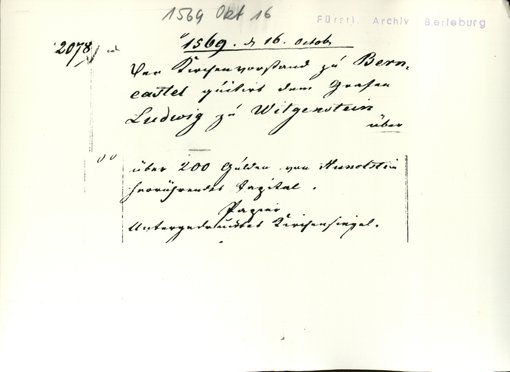 1569 Okt 16
Fürstl. Archiv Berleburg
2078
1569. d 16. Octob
Der Kirchenvorstand zu Bern-
castel quitirt dem Grafen
Ludwig zu Witgenstein
über
über 200 Gulden von Hunoltstein
herrührendes Capital.
Papier
Untergedrucktes Kirchensiegel.